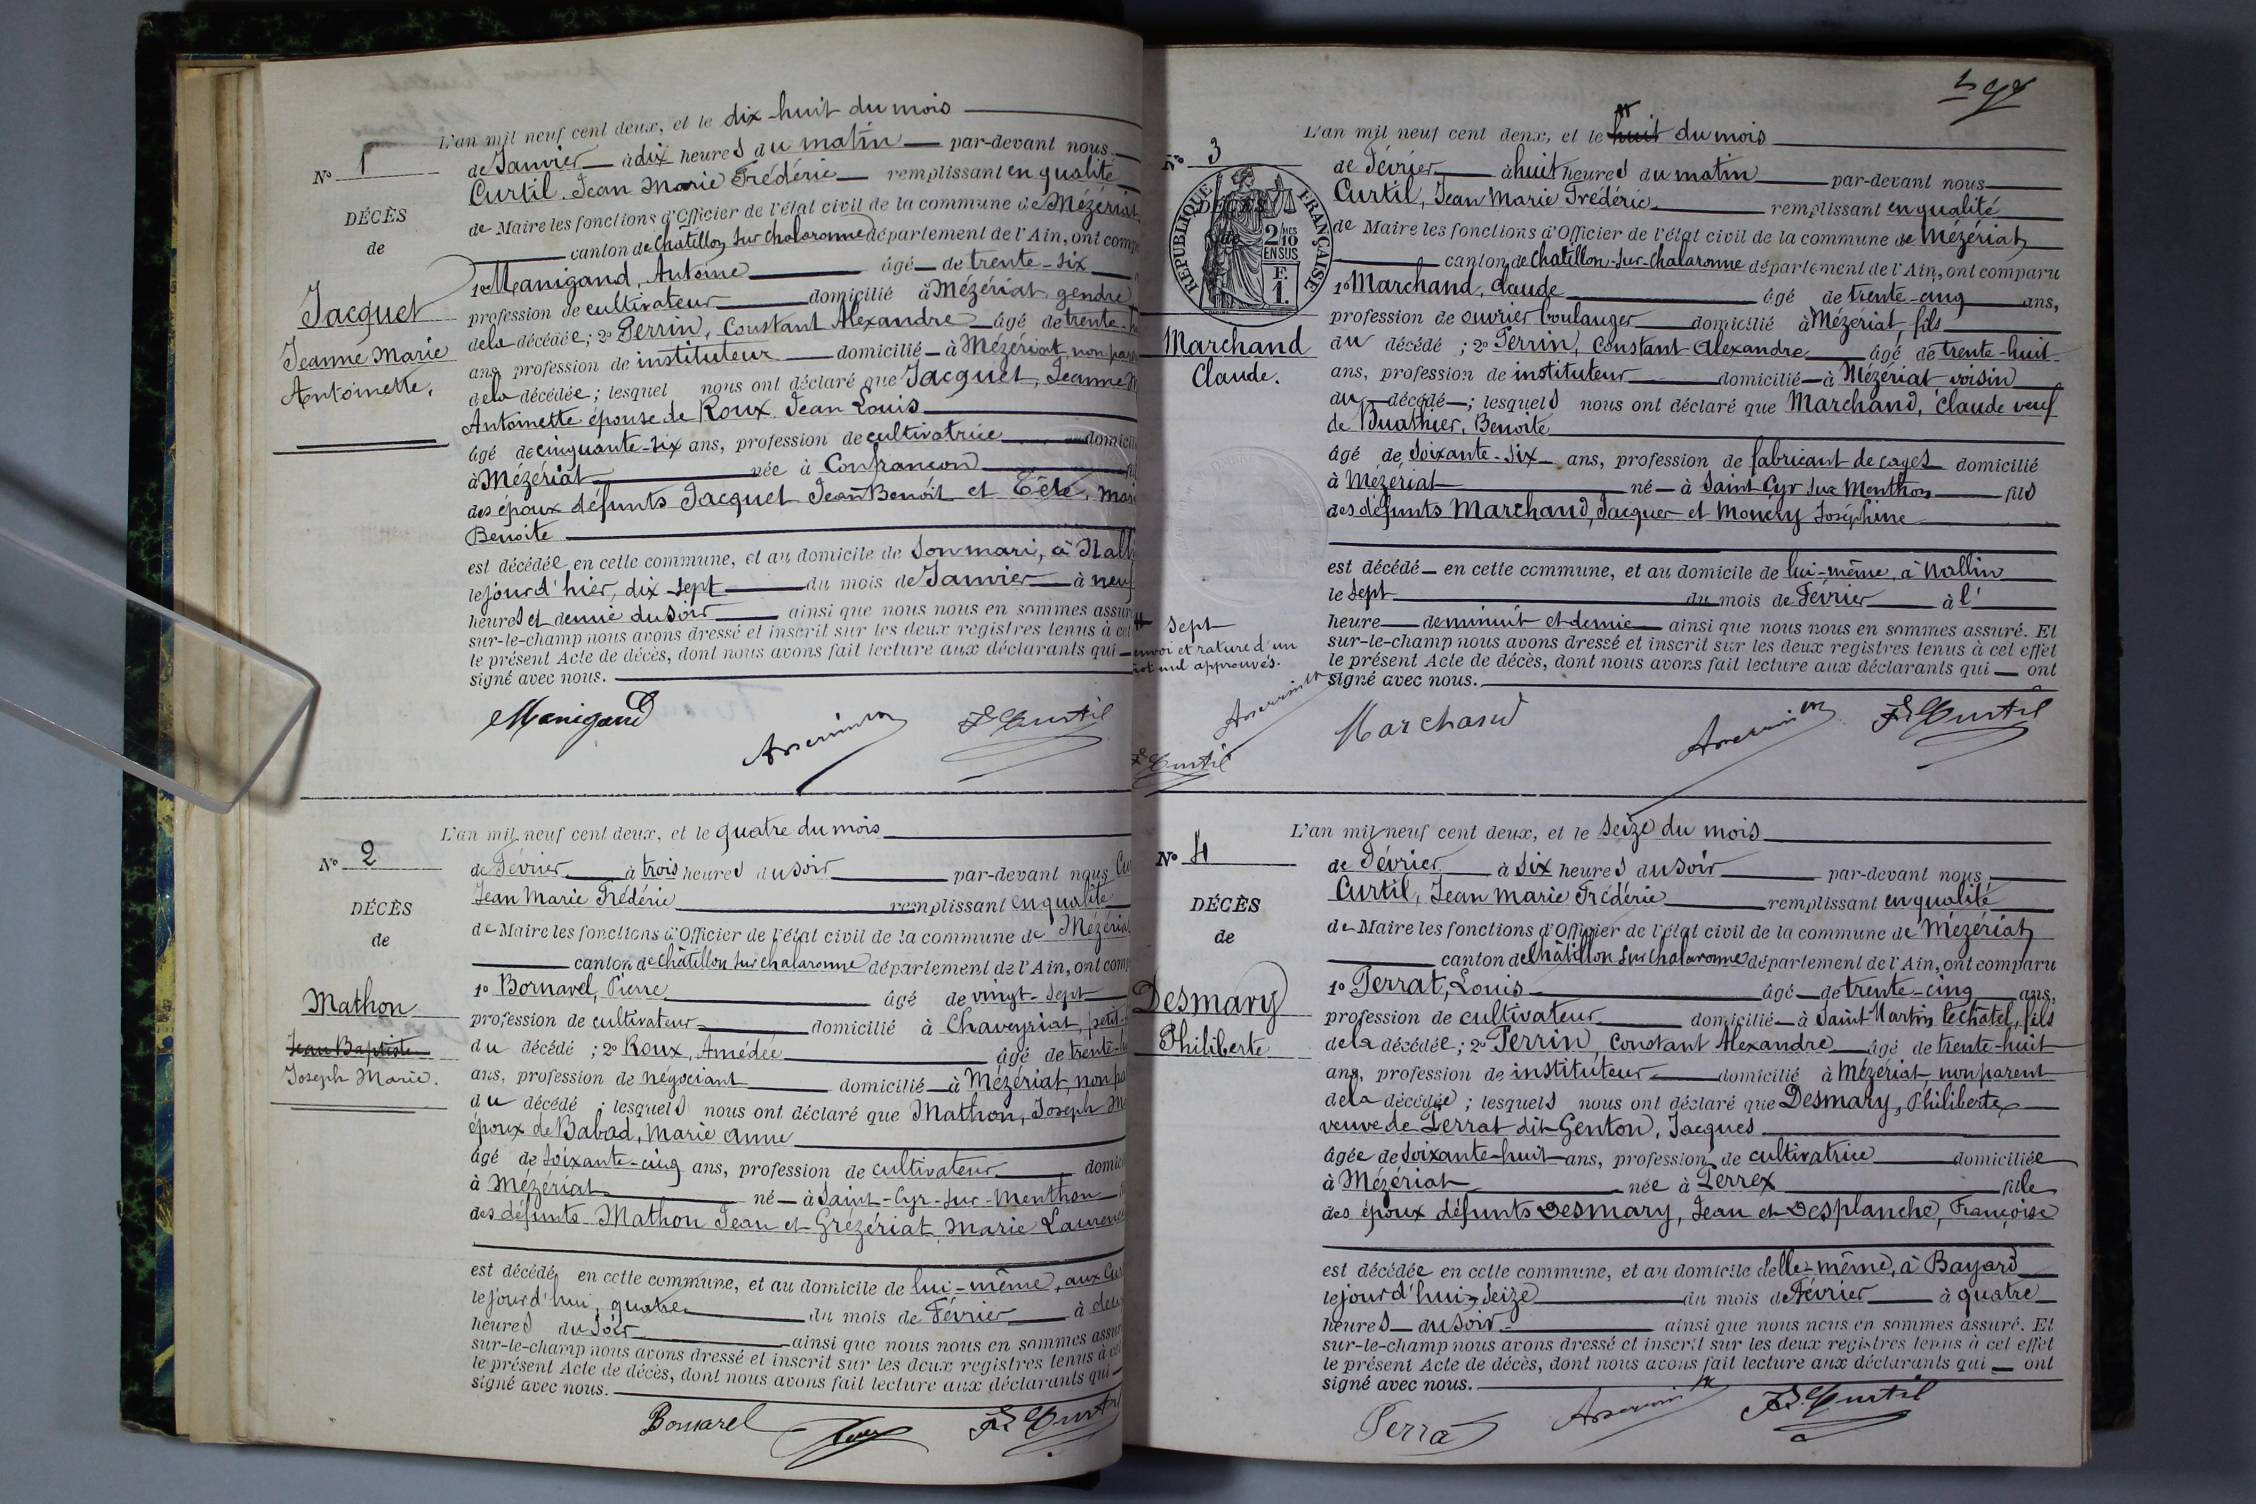 L'an mil neuf cent deux, et le dix-huit du mois
No 1
de Janvier à dix heures du matin par-devant nous
Curtil Jean Marie Frédéric remplissant en qualité
DÉCÈS
de Maire les fonctions d'Officier de l'état civil de la commune de Mézériat
de
canton de Châtillon sur Chalaronne département de l'Ain, ont comp
1o Manigand, Antoine âgé de trente-six
Jacquet
profession de cultivateur domicilié à Mézériat gendre
de la décédée; 2o Perrin, Constant Alexandre âgé de trente-h
Jeanne Marie
ans, profession de instituteur domicilié à Mézériat non par
Antoinette.
de la décédée; lesquel nous ont déclaré que Jacquet, Jeanne M
Antoinette épouse de Roux Jean Louis
âgé de cinquante-six ans, profession de cultivatrice domicil
à Mézériat née à Confrançon
des époux défunts Jacquet Jean Benoît et Tête, Mari
Benoite
est décédée en cette commune, et au domicile de son mari, à Nall
le jour d'hier, dix sept du mois de Janvier à neuf
heures et demie du soir ainsi que nous nous en sommes assur
sur-le-champ nous avons dressé et inscrit sur les deux registres tenus à cet
le présent Acte de décès, dont nous avons fait lecture aux déclarants qui
signé avec nous.
Manigand
F. Curtil
L'an mil neuf cent deux, et le quatre du mois
No 2
de Février à trois heures du soir par-devant nous Cu
Jean Marie Frédéric remplissant en qualité
DÉCÈS
de Maire les fonctions d'Officier de l'état civil de la commune de Mézéria
de
canton de Châtillon sur Chalaronne département de l'Ain, ont comp
1o Bornarel, Pierre âgé de vingt-sept
Mathon
profession de cultivateur domicilié à Chaveyriat, petit-
Jean Baptiste
du décédé; 2o Roux, Amédée âgé de trente-
Joseph Marie.
ans, profession de négociant domicilié à Mézériat, non pa
du décédé; lesquels nous ont déclaré que Mathon, Joseph M
époux de Babad, Marie Anne
âgé de soixante-cinq ans, profession de cultivateur domic
à Mézériat né à Saint-Cyr-sur-Menthon
des défunts Mathon Jean et Grézériat, Marie Laurenc
est décédé en cette commune, et au domicile de lui-même, aux
le jourd'hui, quatre du mois de Février à deu
heures du soir ainsi que nous nous en sommes assur
sur-le-champ nous avons dressé et inscrit sur les deux registres tenus à cet
le présent Acte de décès, dont nous avons fait lecture aux déclarants qui
signé avec nous.
Bornarel
Roux
F. Curtil
L'an mil neuf cent deux, et le huit du mois
No 3
de Février à huit heures du matin par-devant nous
Curtil, Jean Marie Frédéric remplissant en qualité
RÉPUBLIQUE FRANÇAISE
2/10 EN SUS
F. 1.
de Maire les fonctions d'Officier de l'état civil de la commune de Mézériat
canton de Châtillon-sur-Chalaronne département de l'Ain, ont comparu
1o Marchand, Claude âgé de trente-cinq ans,
profession de ouvrier boulanger domicilié à Mézériat fils
Marchand
du décédé; 2o Perrin, Constant Alexandre âgé de trente-huit
Claude.
ans, profession de instituteur domicilié à Mézériat voisin
du décédé; lesquels nous ont déclaré que Marchand, Claude veuf
de Buathier, Benoite
âgé de soixante-six ans, profession de fabricant de cages domicilié
à Mézériat né à Saint Cyr sur Menthon fils
des défunts Marchand, Jacques et Moncry Joséphine
est décédé en cette commune, et au domicile de lui-même, à Nallin
le sept du mois de Février à l'
heure de minuit et demie ainsi que nous nous en sommes assuré. Et
sept
sur-le-champ nous avons dressé et inscrit sur les deux registres tenus à cet effet
envoi et rature d'un
le présent Acte de décès, dont nous avons fait lecture aux déclarants qui ont
mot nul approuvés.
signé avec nous.
Marchand
F. Curtil
F. Curtil
L'an mil neuf cent deux, et le seize du mois
No 4
de Février à six heures du soir par-devant nous
Curtil, Jean Marie Frédéric remplissant en qualité
DÉCÈS
de Maire les fonctions d'Officier de l'état civil de la commune de Mézériat
de
canton de Châtillon sur Chalaronne département de l'Ain, ont comparu
1o Perrat, Louis âgé de trente-cinq ans,
Desmary
profession de cultivateur domicilié à Saint Martin le Châtel, fils
Philiberte
de la décédée; 2o Perrin, Constant Alexandre âgé de trente-huit
ans, profession de instituteur domicilié à Mézériat, non parent
de la décédée; lesquels nous ont déclaré que Desmary, Philiberte
veuve de Perrat dit Genton, Jacques
âgée de soixante-huit ans, profession de cultivatrice domiciliée
à Mézériat née à Perrex fille
des époux défunts Desmary, Jean et Desplanche, Françoise
est décédée en cette commune, et au domicile d'elle-même, à Bayard
le jourd'hui, seize du mois de Février à quatre
heures du soir ainsi que nous nous en sommes assuré. Et
sur-le-champ nous avons dressé et inscrit sur les deux registres tenus à cet effet
le présent Acte de décès, dont nous avons fait lecture aux déclarants qui ont
signé avec nous.
Perrat
F. Curtil